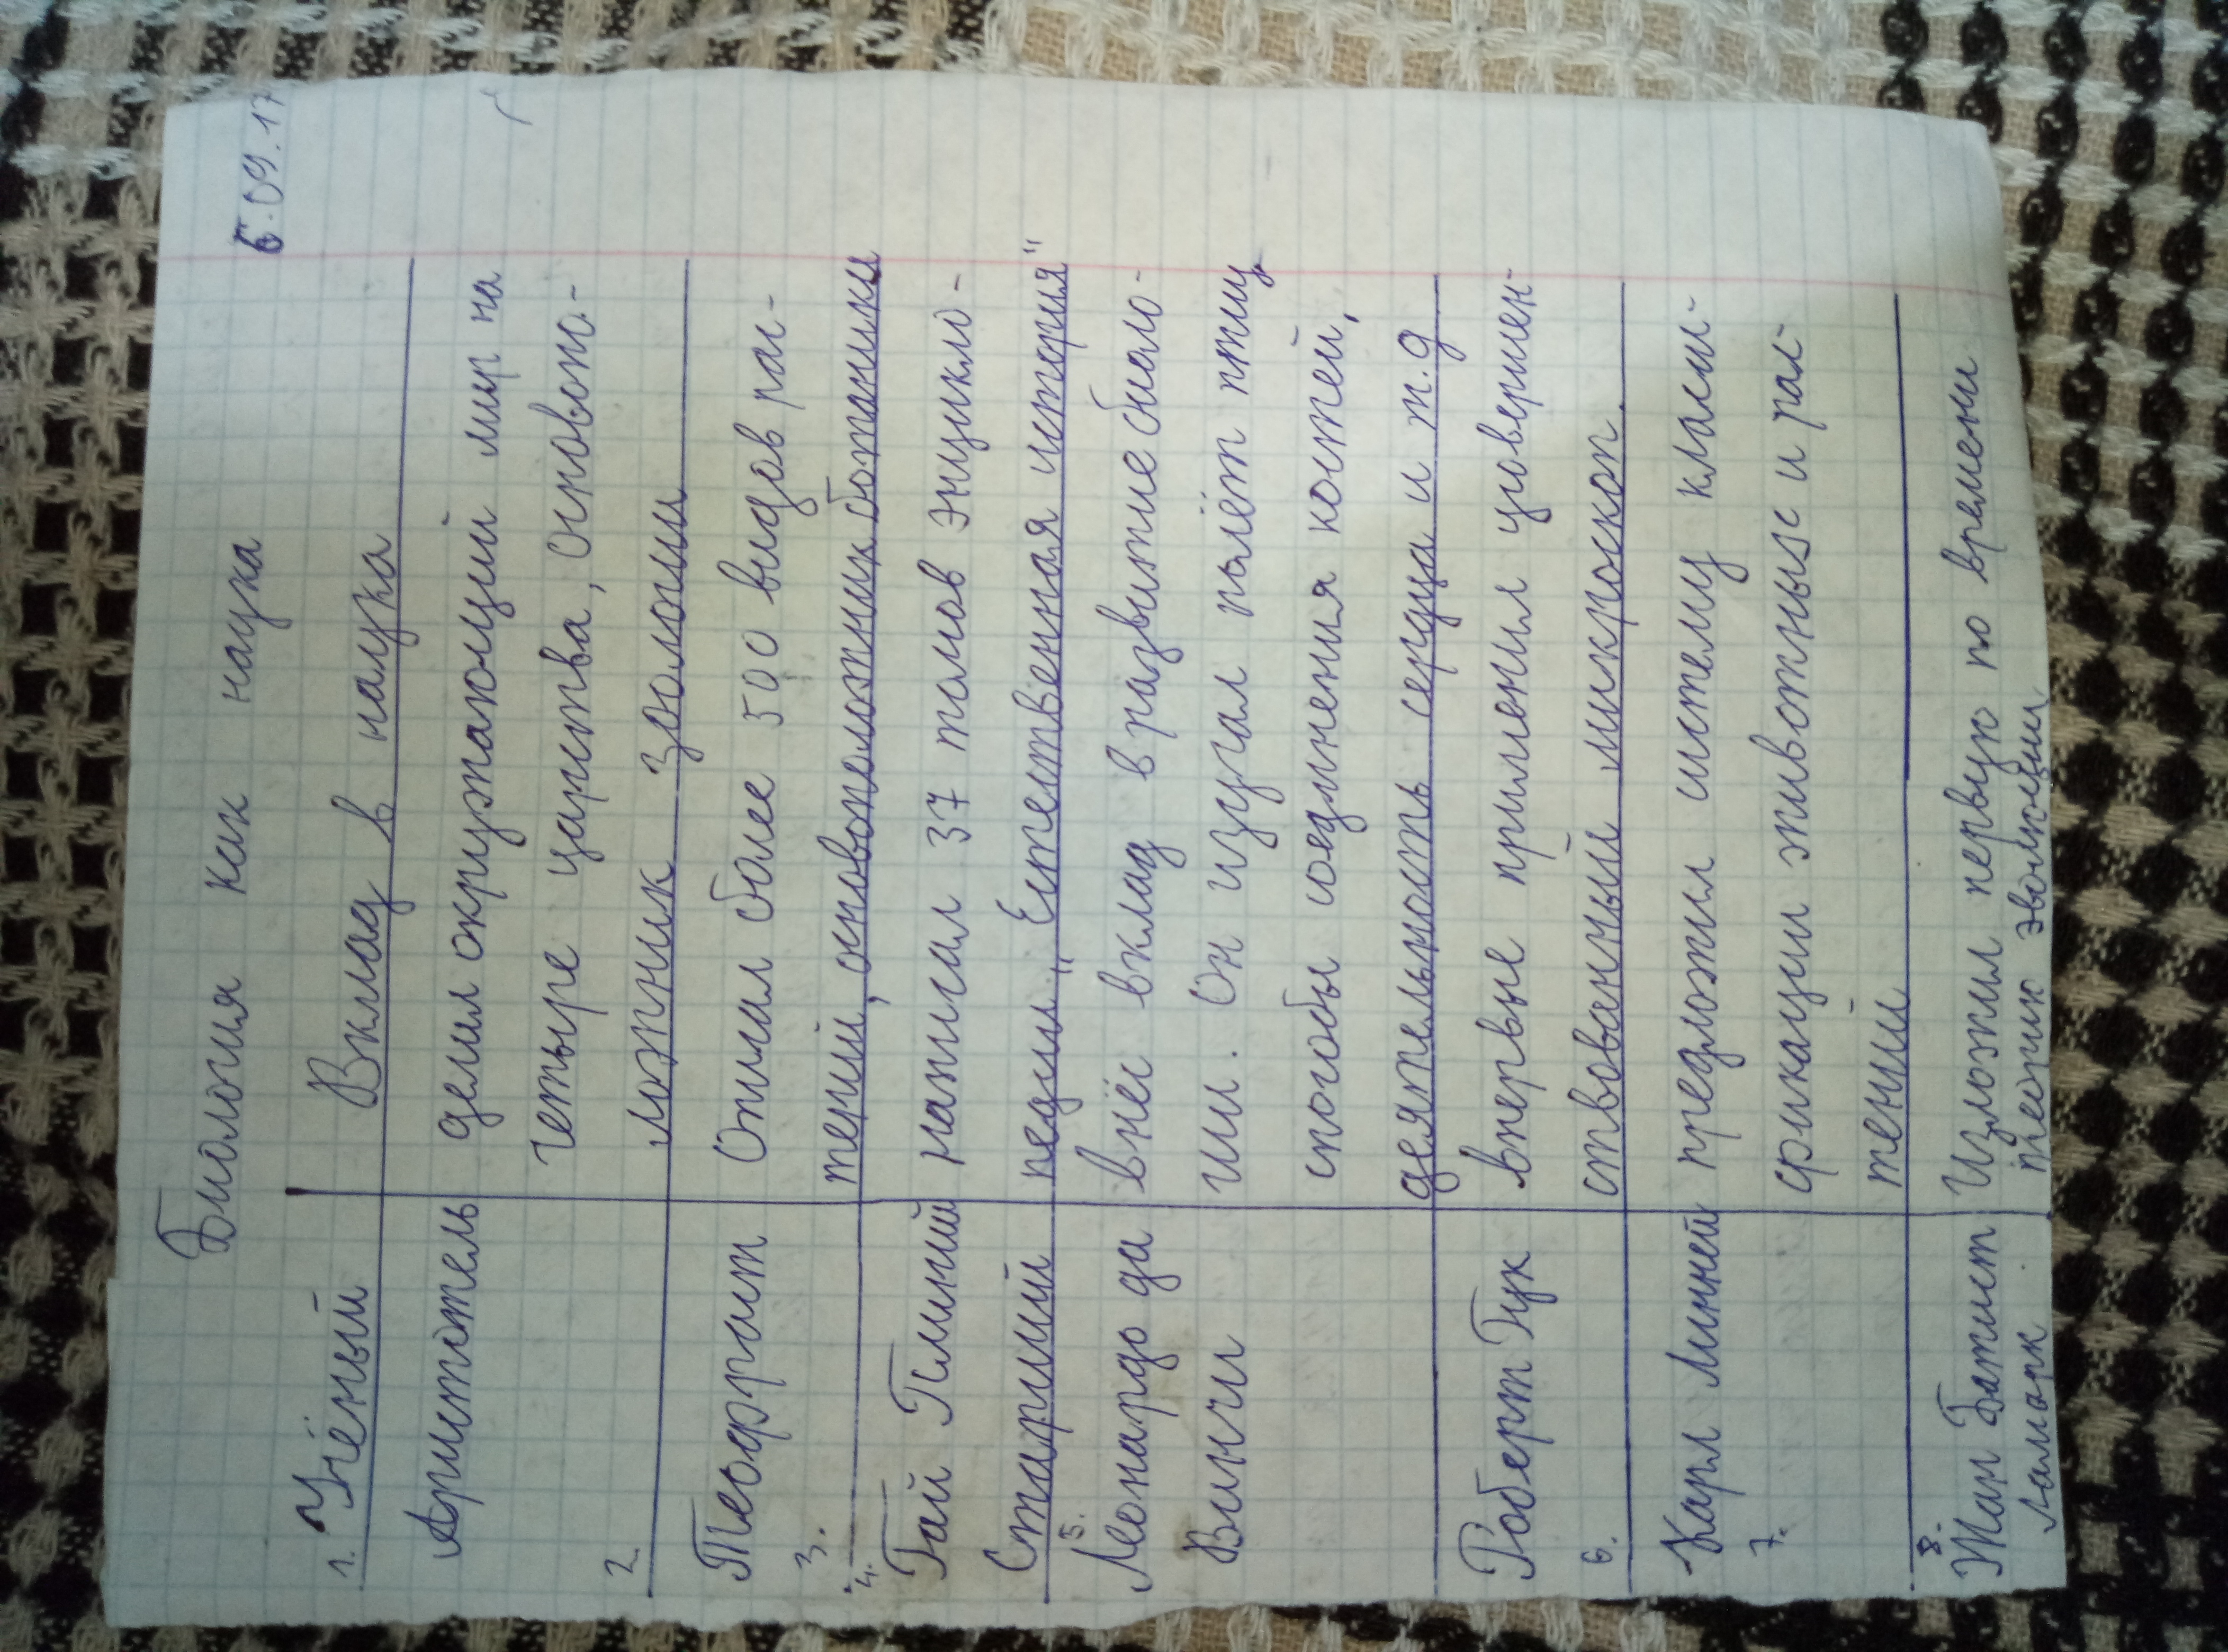 6.09.17
Биология как наука
1. Учёный Вклад в наука
Аристотель делил окружающий мир на
четыре царства, основопо-
2. ложник зоологии
Теофраст Описал более 500 видов рас-
3. тений, основоположник ботаники
4. Гай Плиний написал 37 томов энцикло-
Старший педии „Естественная история"
5. Леонардо да внёс вклад в развитие биоло-
Винчи гии. Он изучал полёт птиц,
способы соединения костей,
деятельность сердца и т.д
Роберт Гук впервые применил усовершен-
6. ствованный микроскоп.
Карл Линней предложил систему класси-
7. фикации животных и рас-
тений
8. Жан Батист Изложил первую по времени
Ламарк теорию эволюции